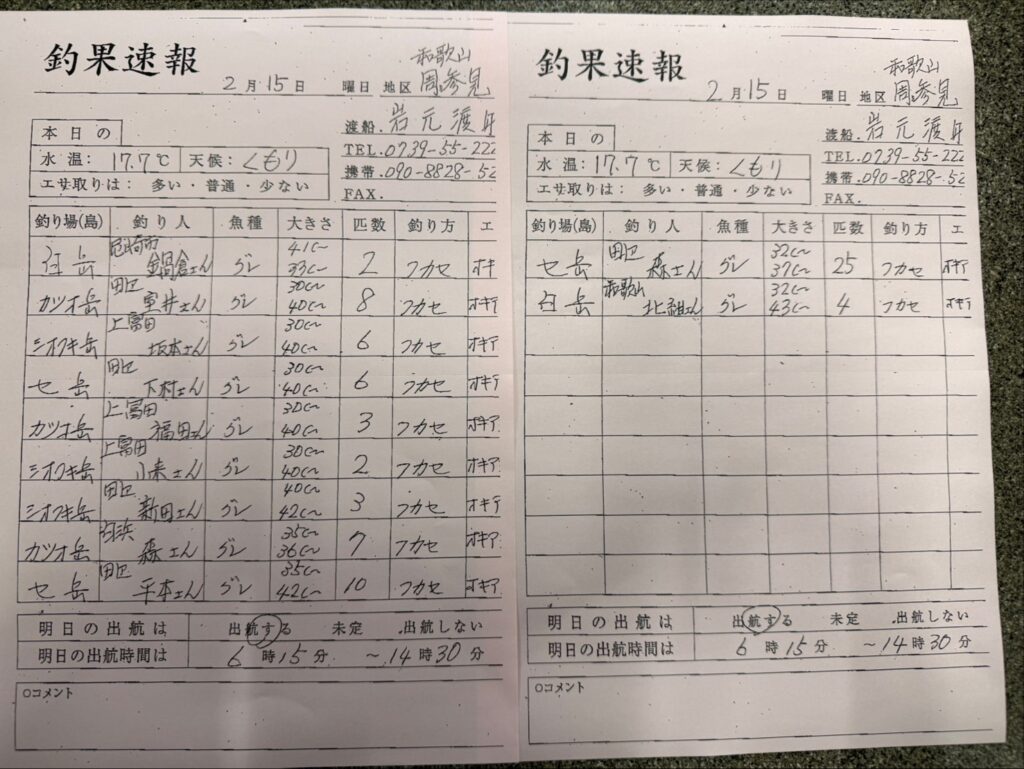 釣果速報
和歌山
2月15日 曜日 地区 周参見
渡船. 岩元渡
本日の
TEL.0739-55-222
水温: 17.7℃ 天候: くもり
携帯.090-8828-52
エサ取りは: 多い・普通・少ない
FAX.
釣り場(島) 釣り人 魚種 大きさ 匹数 釣り方 エ
尼崎市 41㎝
白岳 鍋倉さん グレ 33㎝ 2 フカセ オキ
田辺 30㎝
カツオ岳 室井さん グレ 40㎝ 8 フカセ オキア
上富田 30㎝
シオフキ岳 坂本さん グレ 40㎝ 6 フカセ オキア
田辺 30㎝
セ岳 下村さん グレ 40㎝ 6 フカセ オキア
上富田 30㎝
カツオ岳 福田さん グレ 40㎝ 3 フカセ オキア
上富田 30㎝
シオフキ岳 さん グレ 40㎝ 2 フカセ オキア
田辺 40㎝
シオフキ岳 新田さん グレ 42㎝ 3 フカセ オキア
白浜 35㎝
カツオ岳 森さん グレ 36㎝ 7 フカセ オキア
田辺 35㎝
セ岳 平本さん グレ 42㎝ 10 フカセ オキア
明日の出航は 出航する 未定 .出航しない
明日の出航時間は 6時15分 ~14時30分
○コメント
釣果速報
和歌山
2月15日 曜日 地区 周参見
渡船. 岩元渡
本日の
TEL.0739-55-222
水温: 17.7℃ 天候: くもり
携帯.090-8828-52
エサ取りは: 多い・普通・少ない
FAX.
釣り場(島) 釣り人 魚種 大きさ 匹数 釣り方 エ
田辺 32㎝
セ岳 森さん グレ 37㎝ 25 フカセ オキア
和歌山 32㎝
白岳 さん グレ 43㎝ 4 フカセ オキア
明日の出航は 出航する 未定 .出航しない
明日の出航時間は 6時15分 ~14時30分
○コメント